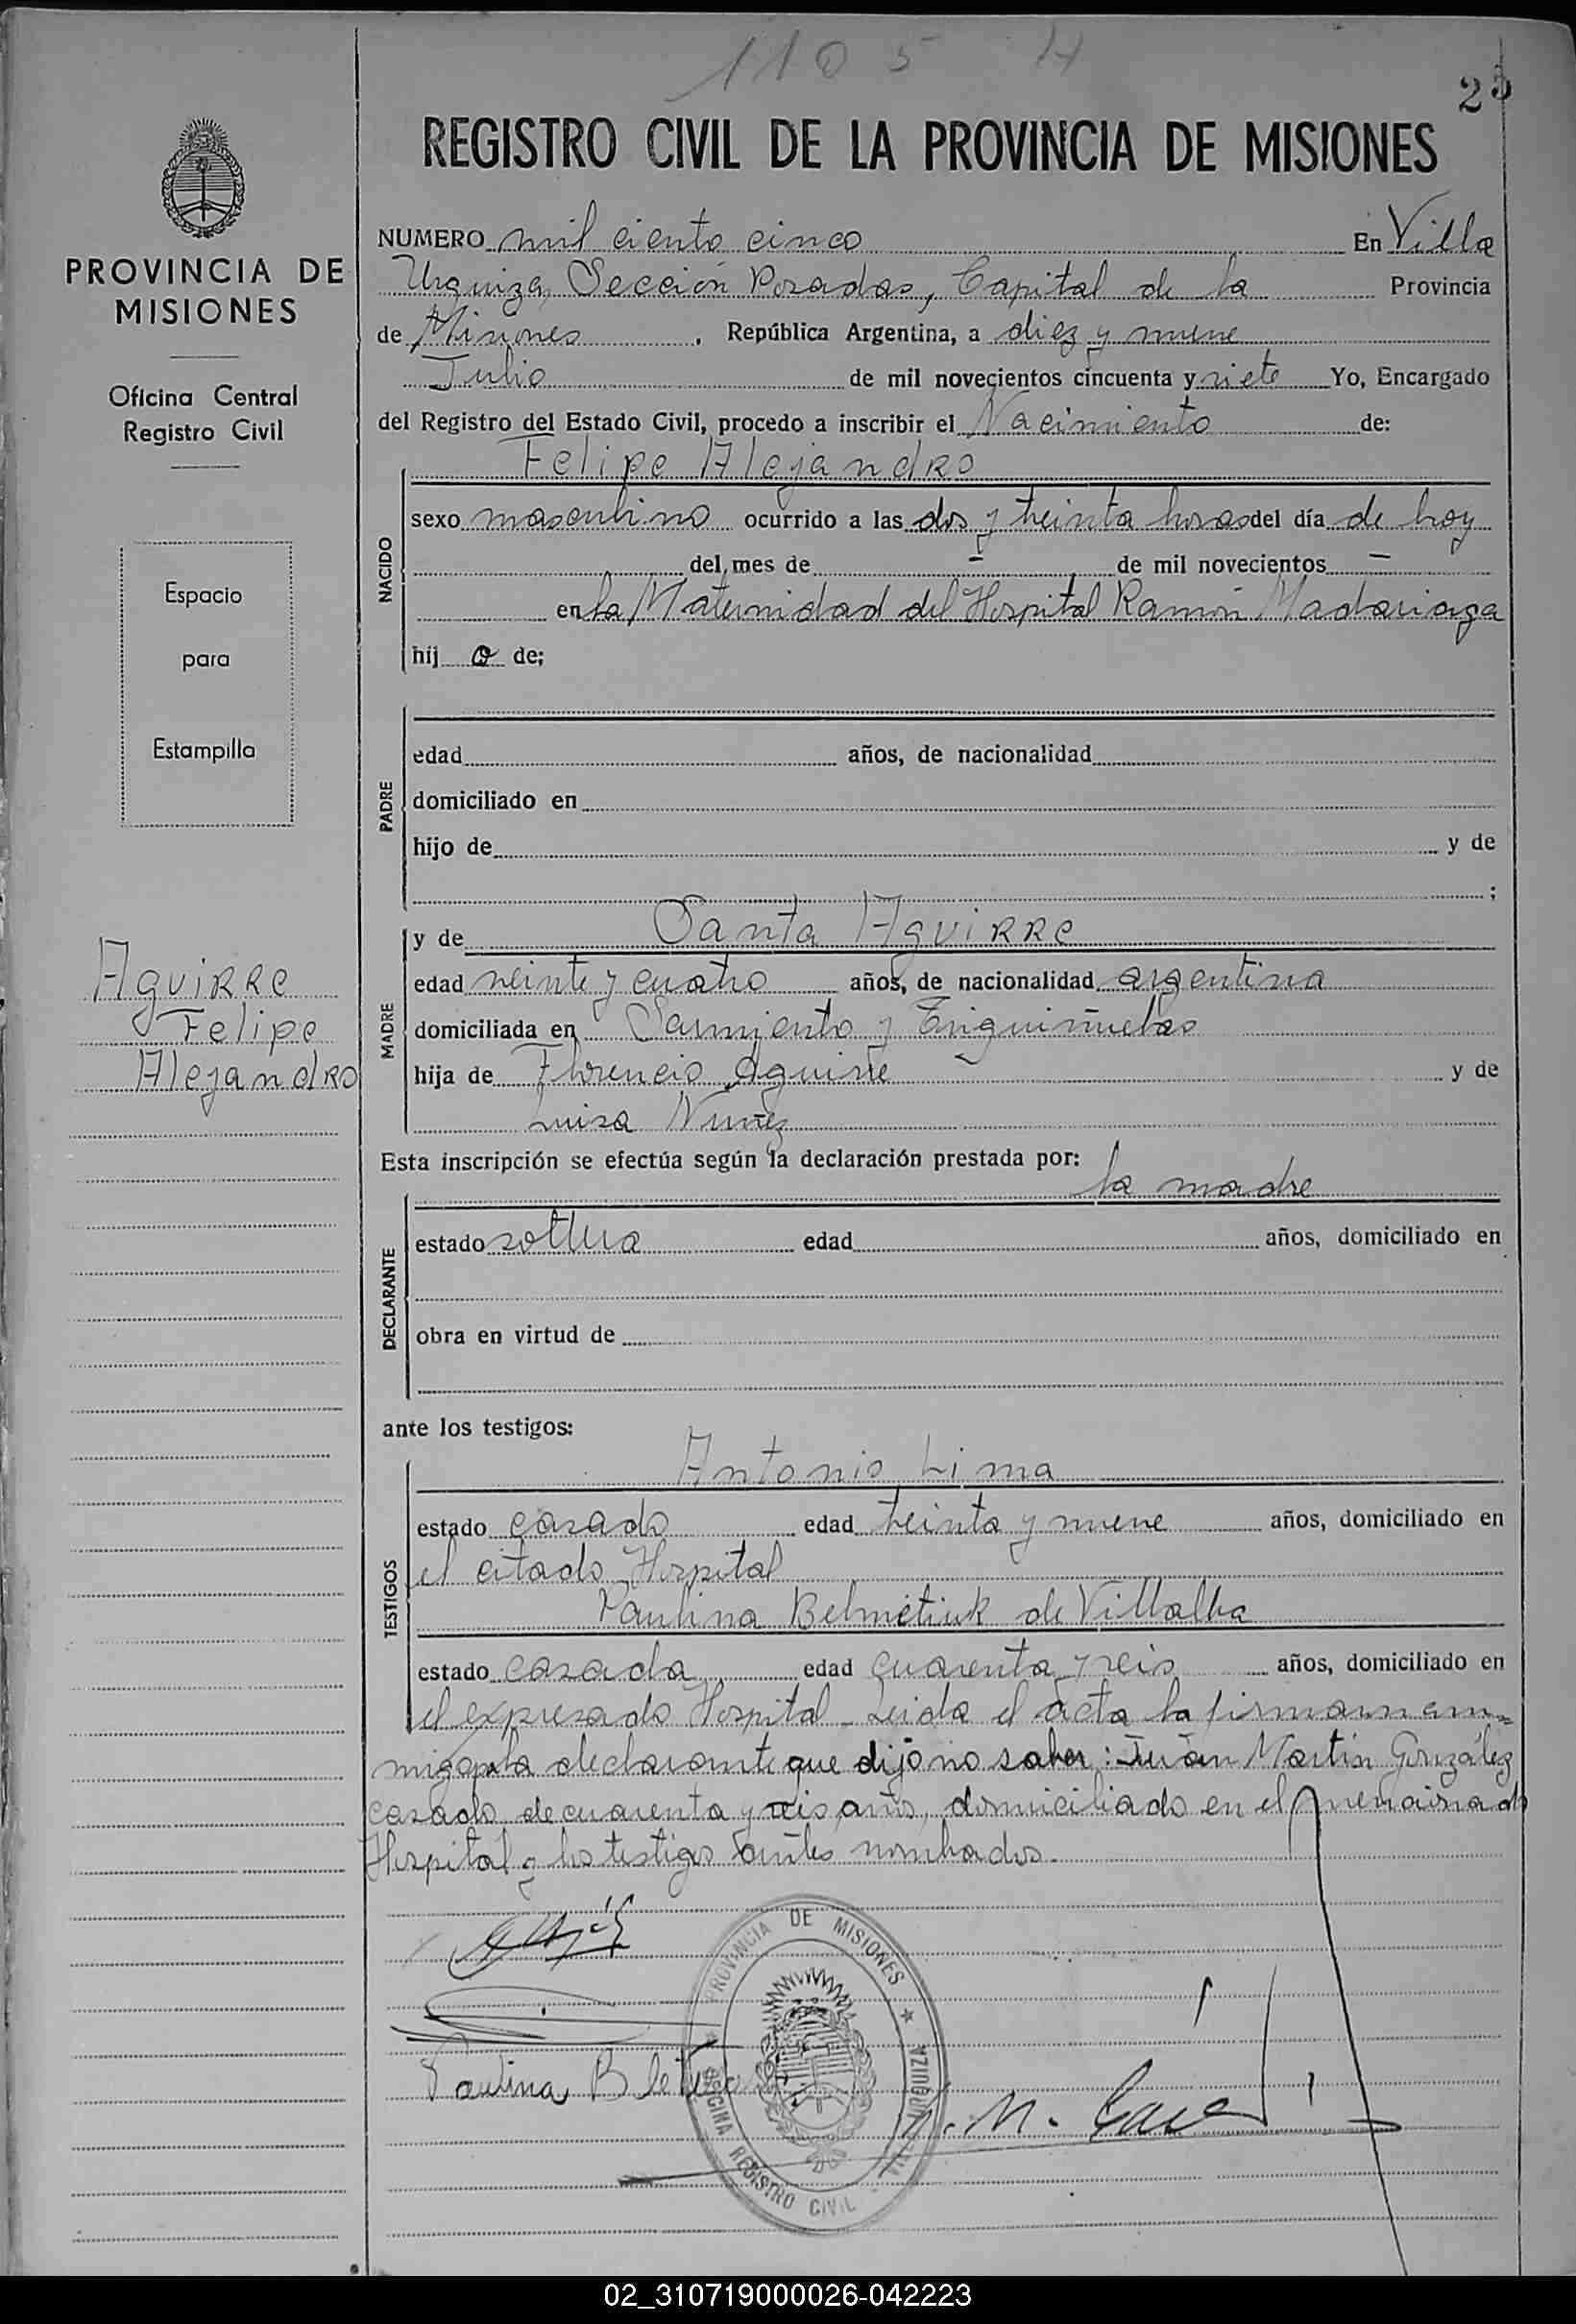 1105 H
25
REGISTRO CIVIL DE LA PROVINCIA DE MISIONES
PROVINCIA DE
MISIONES
Oficina Central
Registro Civil
Espacio
para
Estampilla
Aguirre
Felipe
Alejandro
NUMERO mil ciento cinco En Villa
Urquiza, Sección Posadas, Capital de la Provincia
de Misiones, República Argentina, a diez y nueve
Julio de mil novecientos cincuenta y siete Yo, Encargado
del Registro del Estado Civil, procedo a inscribir el Nacimiento de:
NACIDO
Felipe Alejandro
sexo masculino ocurrido a las dos y treinta horas del día de hoy
del mes de - de mil novecientos -
en la Maternidad del Hospital Ramón Madariaga
hij o de;
PADRE
edad años, de nacionalidad
domiciliado en
hijo de y de
;
MADRE
y de Santa Aguirre
edad veinte y cuatro años, de nacionalidad argentina
domiciliada en Sarmiento y
hija de Florencio Aguirre y de
Luisa Nuñez
Esta inscripción se efectúa según la declaración prestada por:
la madre
DECLARANTE
estado soltera edad años, domiciliado en
obra en virtud de
ante los testigos:
TESTIGOS
Antonio Lima
estado casado edad treinta y nueve años, domiciliado en
el citado Hospital
Paulina de Villalba
estado casada edad cuarenta y seis años, domiciliado en
el expresado Hospital - Leida el acta la firman con=
migo la declarante que dijo no saber: Juan Martín González
casado de cuarenta y seis años, domiciliado en el
Hospital y los testigos antes nombrados.
Paulina
PROVINCIA DE MISIONES
OFICINA REGISTRO CIVIL - VILLA URQUIZA
02_310719000026-042223